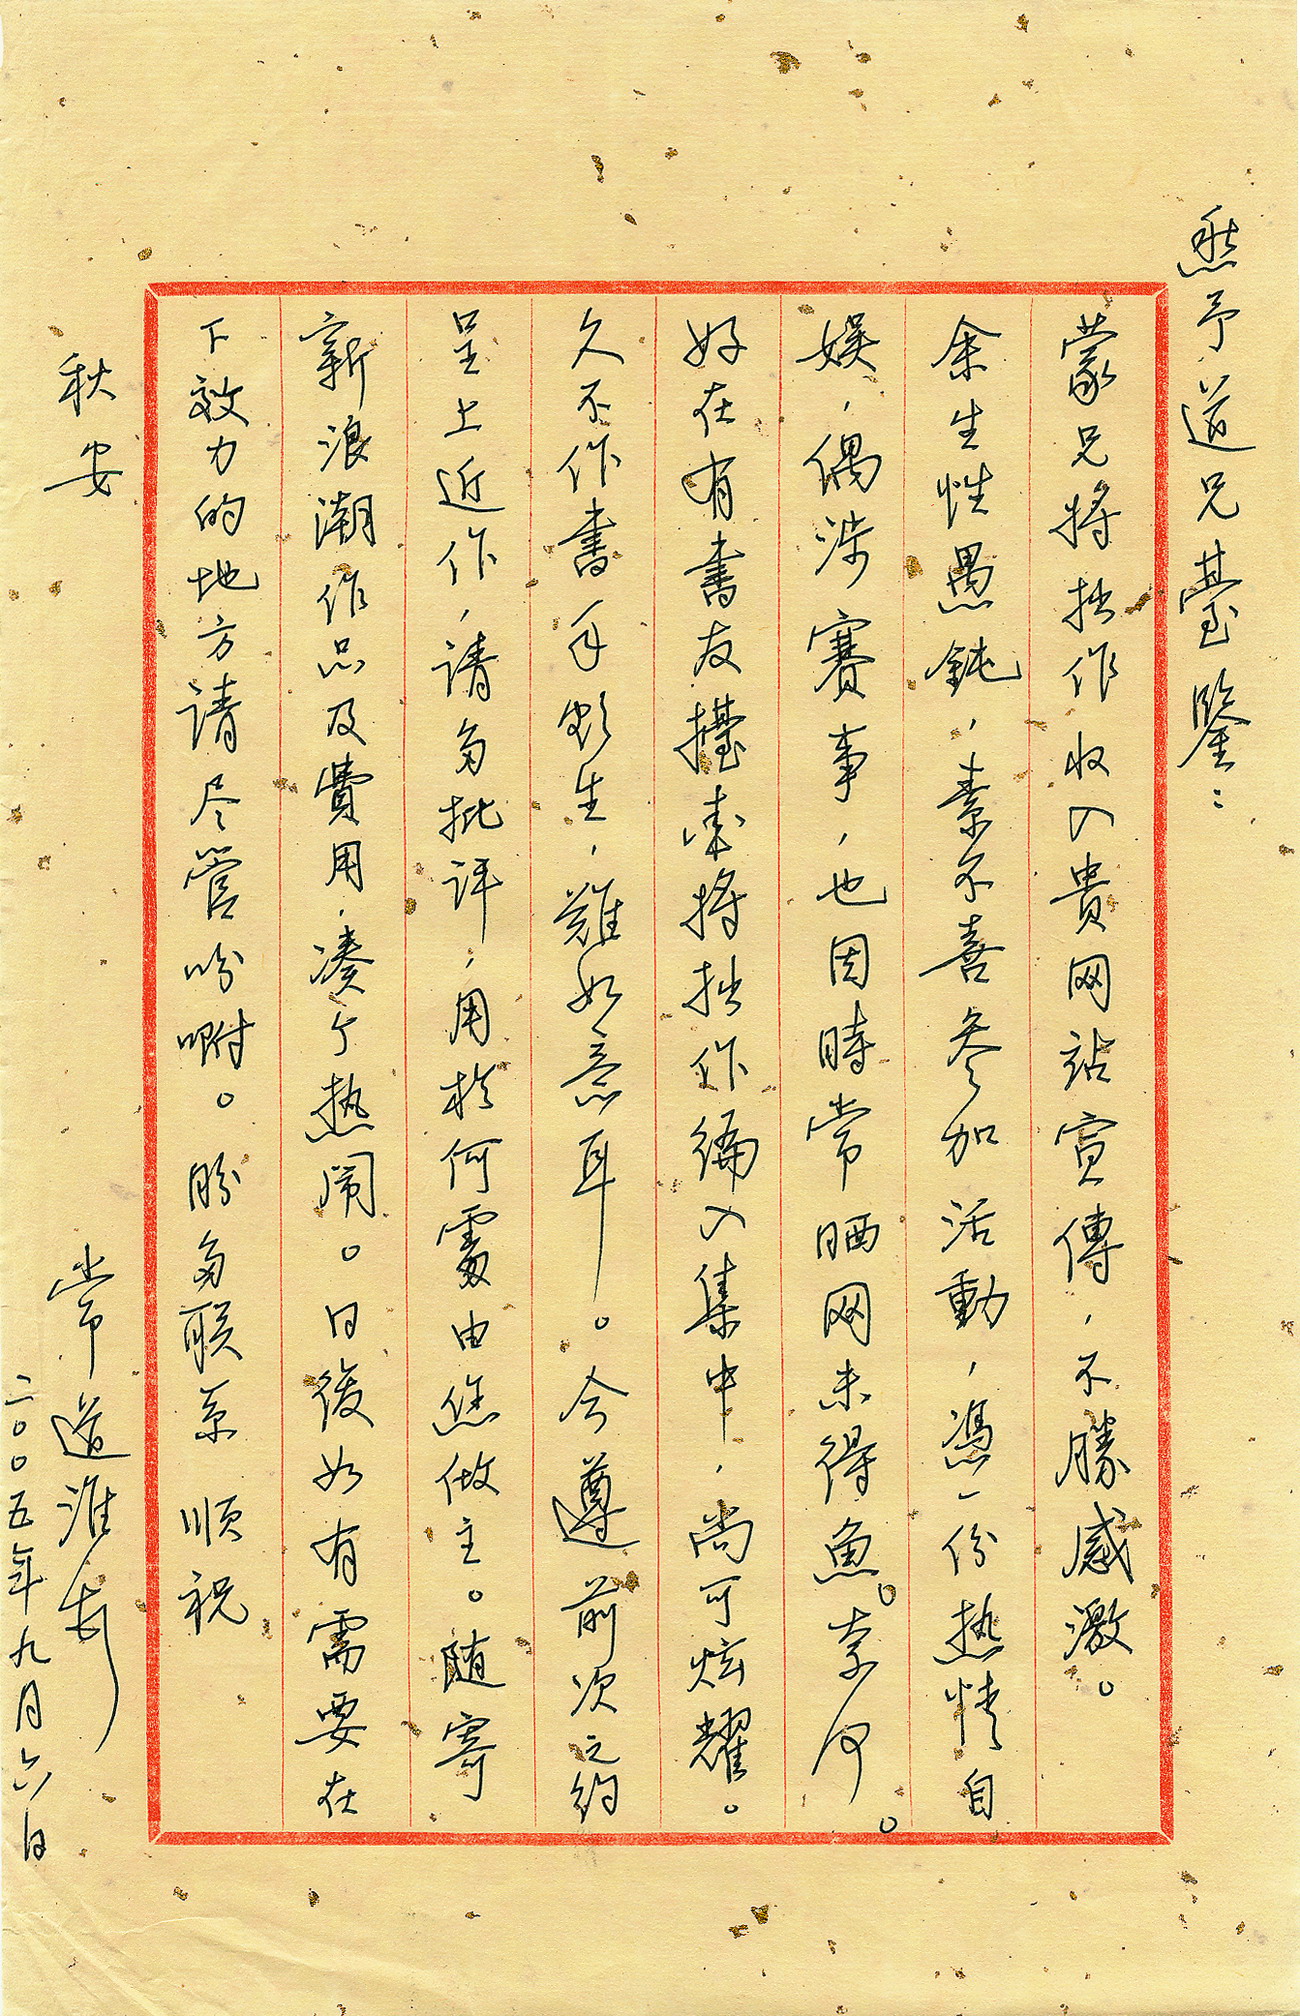 予道兄臺鑒：
蒙兄將拙作收入贵网站宣傳，不勝感激。
余生性愚鈍，素不喜参加活動，憑一份热情自
娱，偶涉賽事，也因時常晒网未得魚。奈何。
好在有書友擡率將拙作编入集中，尚可炫耀。
久不作書，手頗生，難如意耳。今遵前次之约
呈上近作，请多批评，用於何處由您做主。随寄
新浪潮作品及費用，凑个热闹。日後如有需要在
下效力的地方请尽管吩咐。盼多联系 順祝
秋安
常道淮
二〇〇五年九月六日